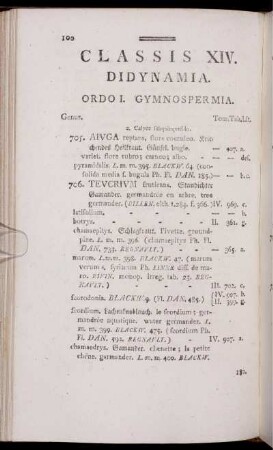 100
CLASSIS XIV.
DIDYNAMIA.
ORDO I. GYMNOSPERMIA.
Genus. Tom.Tab.Lit.
705. AIVGA reptans, flore coeruleo.
chendes Heilkraut. Günsel. bugle. — 407. a.
variet. flore rubro; carneo; albo. — — def.
pyramidalis L. m. m. 395. BLACKW. 64. (con-
solida media f. bugula Ph. Fl. DAN. 185.) — — b.c.
706. TEVCRIVM fruticans. Staudichter
Gamander. germandrée en arbre, tree
germander. (DILLEN. elth. t.284. f. 366.) IV. 969. c.
latifolium. — — b.
botrys. — II. 361. g.
chamaepitys. Schlagkraut. Yvette. ground-
pine. L. m. m. 396. (chamaepitys Ph. Fl.
DAN. 733. REGNAULT.) — — 365. a.
marum. L. m. m. 398. BLACKW. 47. (marum
verum s. syriacum Ph. LINNE diss. de ma-
ro. RIVIN. monop. irreg. tab. 75. REG-
NAULT.) — III. 702. c.
scorodonia. BLACKW. 9. (Fl. DAN. 485.) {IV. 907. b.
{II. 359. g.
scordium. Lachenknoblauch. le scordium; ger-
mandrée aquatique. water germander. L.
m. m. 399. BLACKW. 475. (scordium Ph.
Fl. DAN. 593. REGNAULT.) — IV. 907. a.
chamaedrys. Gamander. chenette; la petite
chêne. germander. L. m. m. 400. BLACKW.
180.